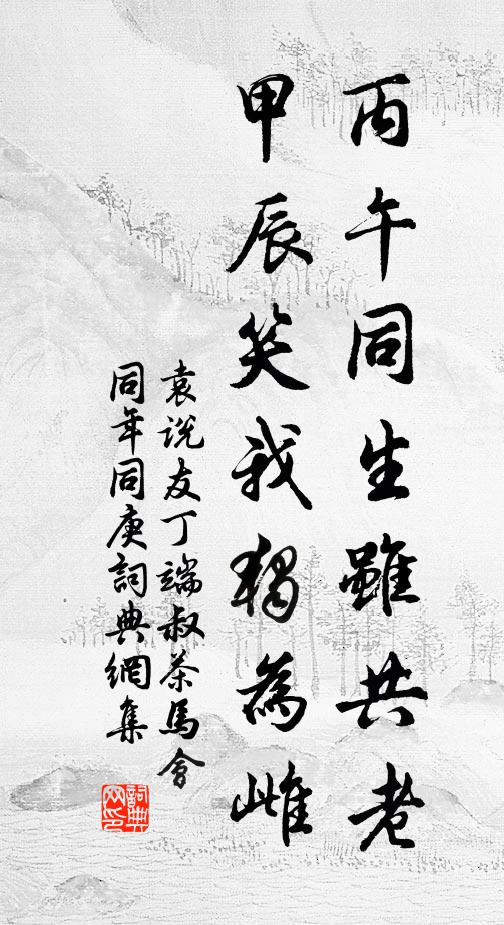 丙午同生雖共老
甲辰笑我獨為雌
袁說友丁端叔茶馬會
同年同庚詞典網集
詞典网印